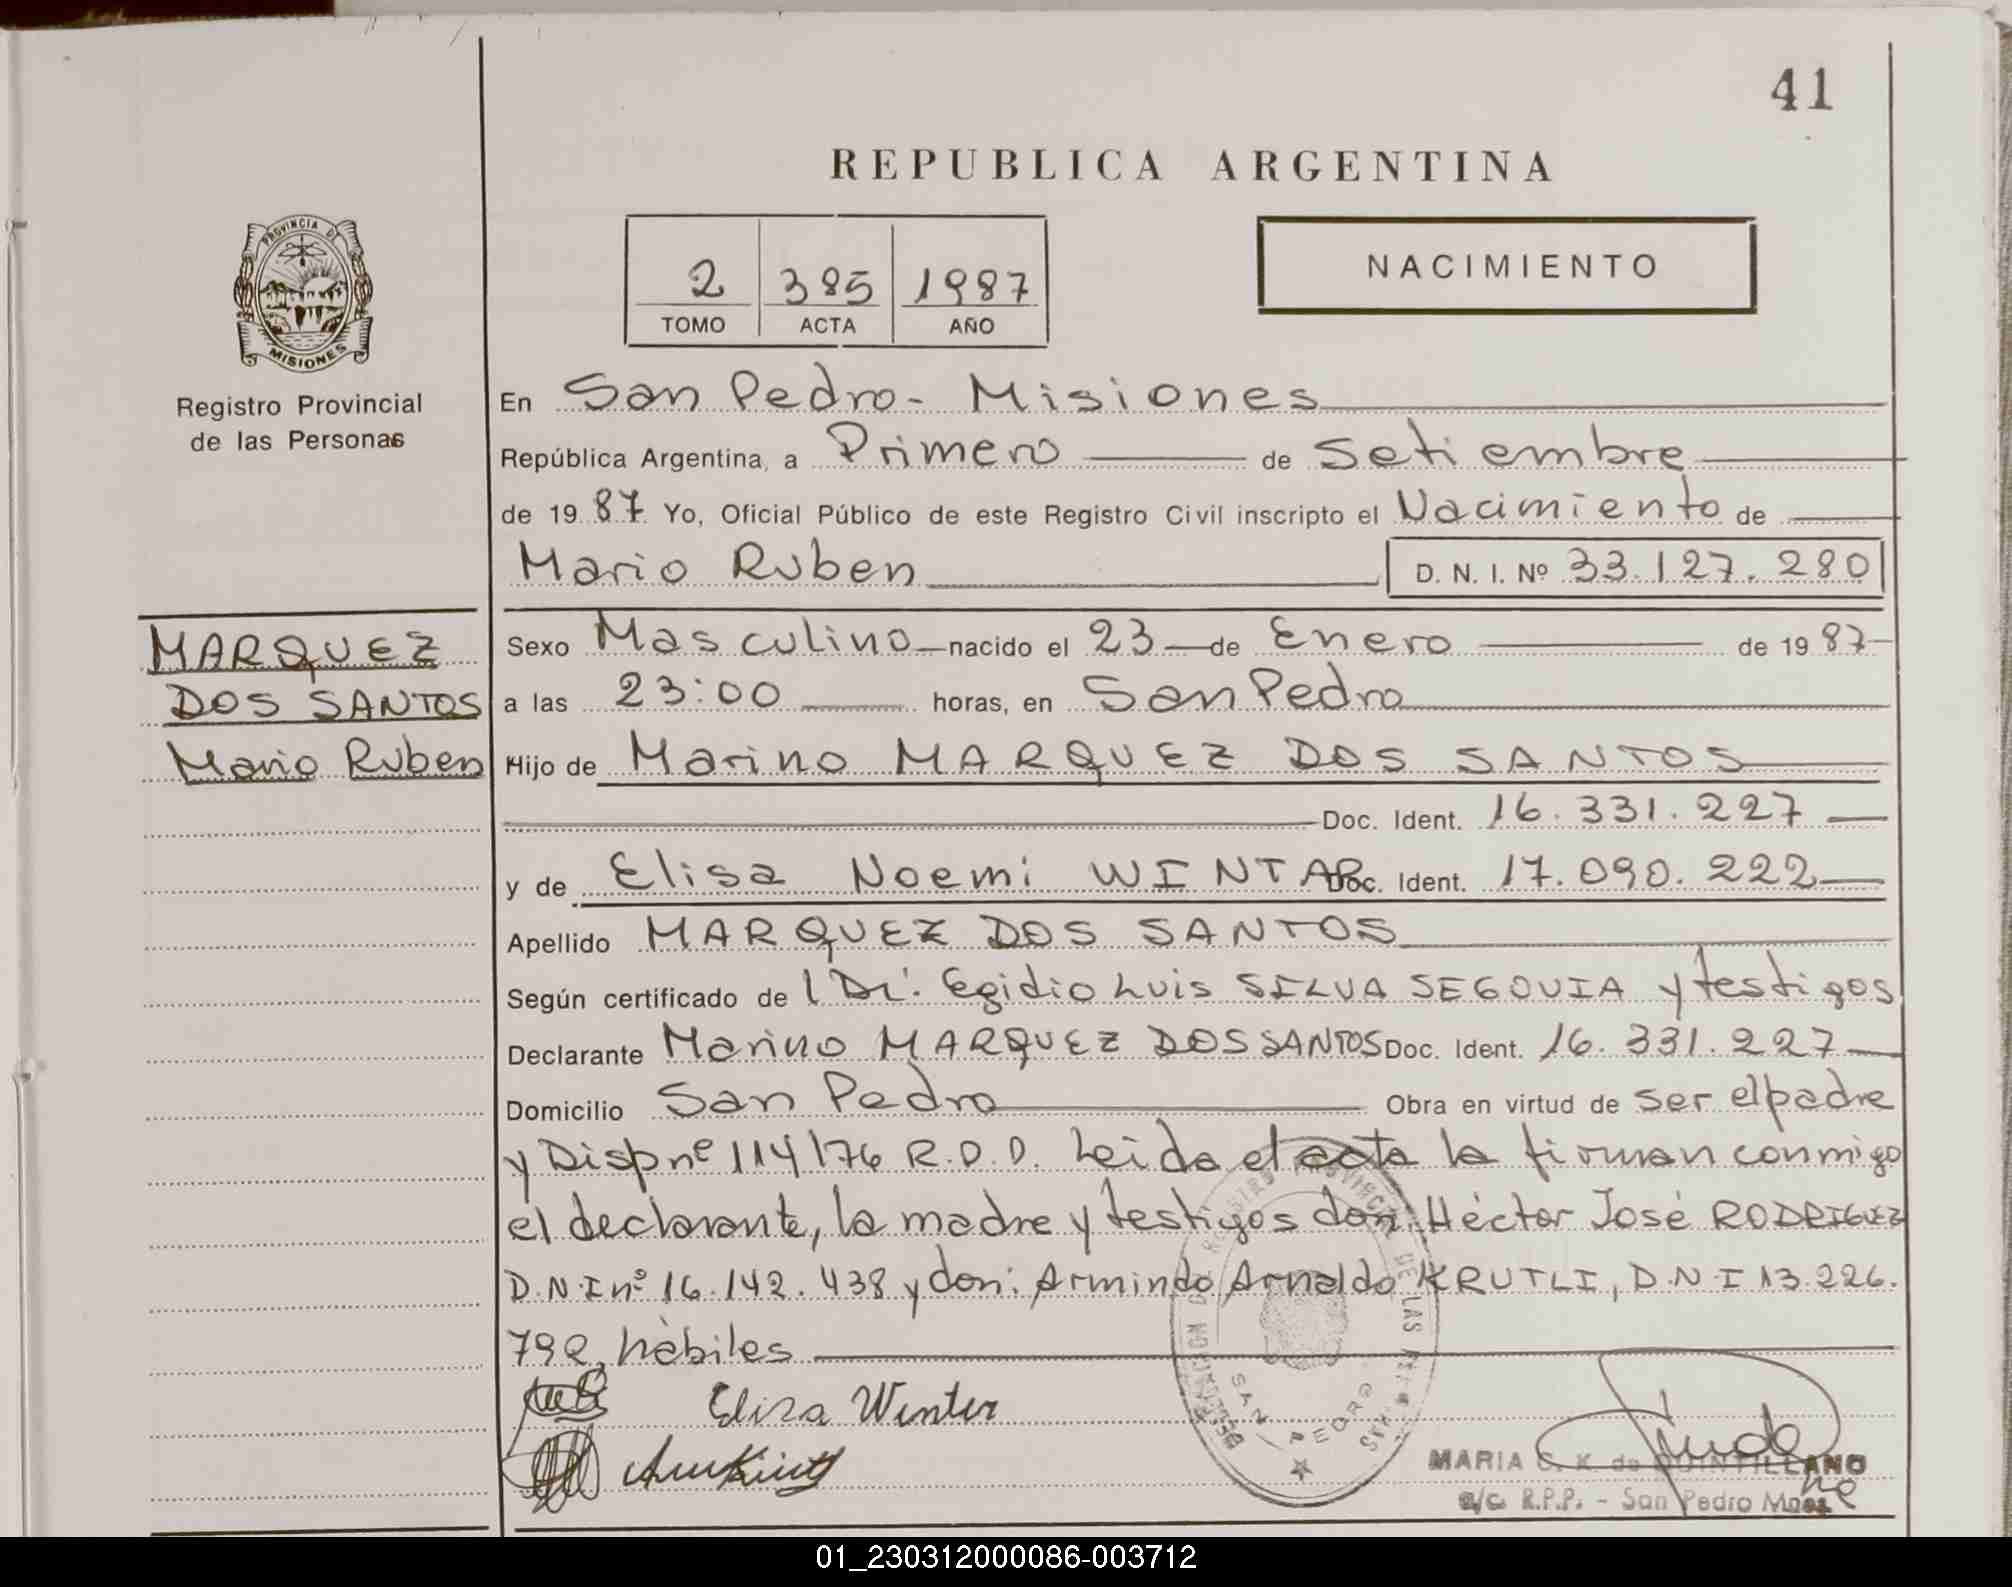 41
REPUBLICA ARGENTINA
PROVINCIA DE
MISIONES
Registro Provincial
de las Personas
2 385 1987
TOMO ACTA AÑO
NACIMIENTO
En San Pedro - Misiones
República Argentina, a Primero de Setiembre
de 1987 Yo, Oficial Público de este Registro Civil inscripto el Nacimiento de
Mario Ruben D. N. I. Nº 33.127.280
MARQUEZ
DOS SANTOS
Mario Ruben
Sexo Masculino nacido el 23 de Enero de 1987
a las 23:00 horas, en San Pedro
Hijo de Marino MARQUEZ DOS SANTOS
Doc. Ident. 16.331.227
y de Elisa Noemi WINTAR Doc. Ident. 17.090.222
Apellido MARQUEZ DOS SANTOS
Según certificado de l Dr. Egidio Luis SILVA SEGOVIA y testigos
Declarante Marino MARQUEZ DOS SANTOS Doc. Ident. 16.331.227
Domicilio San Pedro Obra en virtud de ser el padre
y Disp nº 114/76 R.D.D. Leida el acta la firman conmigo
el declarante, la madre y testigos don: Héctor José RODRIGUEZ
D.N.I nº 16.142.438 y don: Armindo Arnaldo KRUTLI, D.N.I 13.226.
792, hàbiles
Elisa Winter
SAN PEDRO
MARIA C. K. de QUINTILLANO
a/c. R.P.P. - San Pedro Mnes
01_230312000086-003712